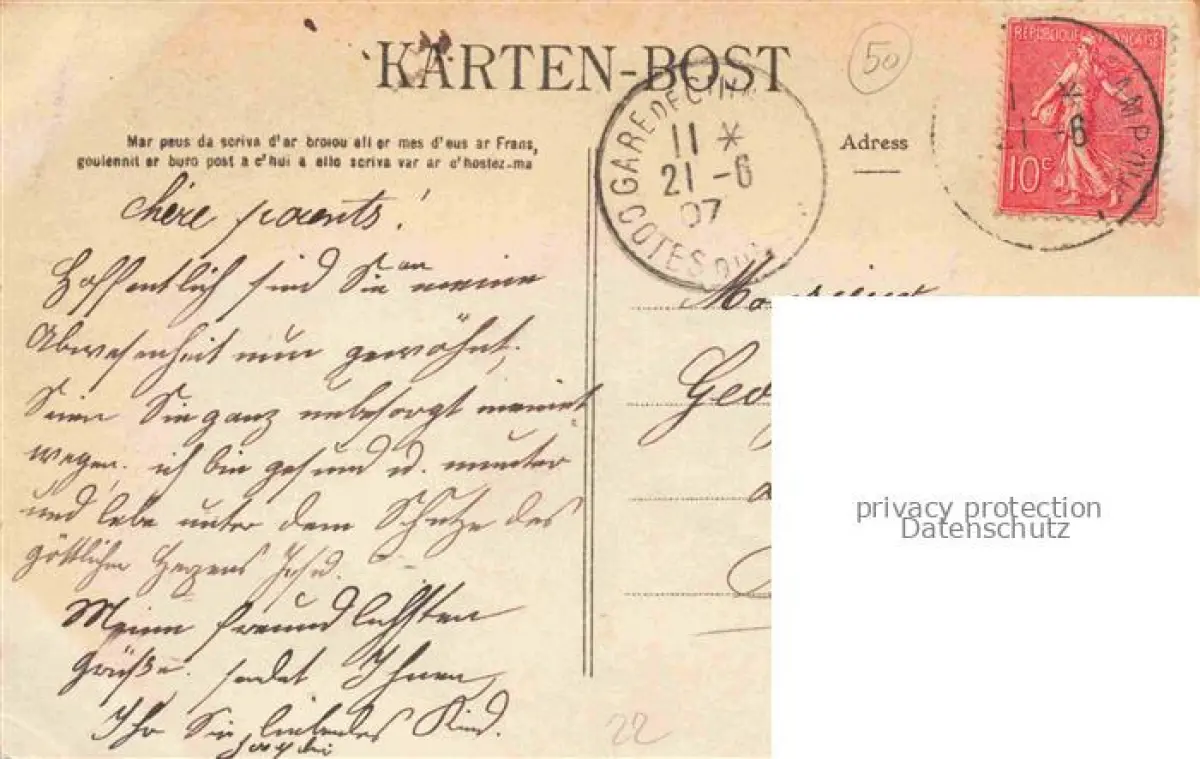 KARTEN-BOST
50
RÉPUBLIQUE FRANÇAISE
10c
GARE DE
11 *
21 -6
07
COTES DU
*
21 -6
Mar peus da scriva d'ar broiou all er mes d'eus ar Frans,
goulennit er buro post a c'hui a ello scriva var ar c'hostez-ma
Adress
chère parents!
Hoffentlich sind Sie an meine
Abwesenheit nun gewöhnt,
Seien Sie ganz unbesorgt meinet
wegen, ich bin gesund u. munter
und lebe unter dem Schutze des
göttlichen Herzens Jesu.
Meine freundlichsten
Grüße sendet Ihnen,
Ihr Sie liebendes Kind.
Monsieur
22
privacy protection
Datenschutz